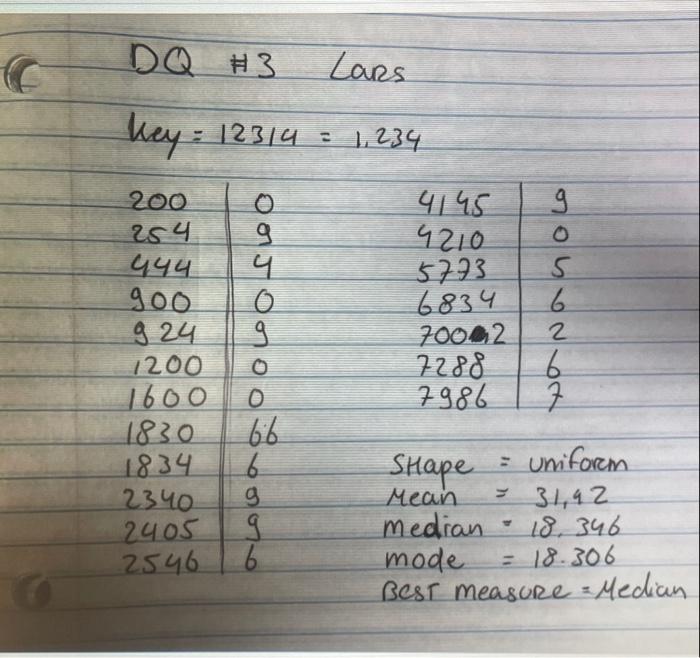 DQ #3 Lars
Key = 123|4 = 1,234
200 | 0
254 | 9
444 | 4
900 | 0
924 | 9
1200 | 0
1600 | 0
1830 | 66
1834 | 6
2340 | 9
2405 | 9
2546 | 6
4145 | 9
4210 | 0
5773 | 5
6834 | 6
7002 | 2
7288 | 6
7986 | 7
Shape = uniform
Mean = 31,42
median = 18,346
mode = 18.306
Best measure = Median